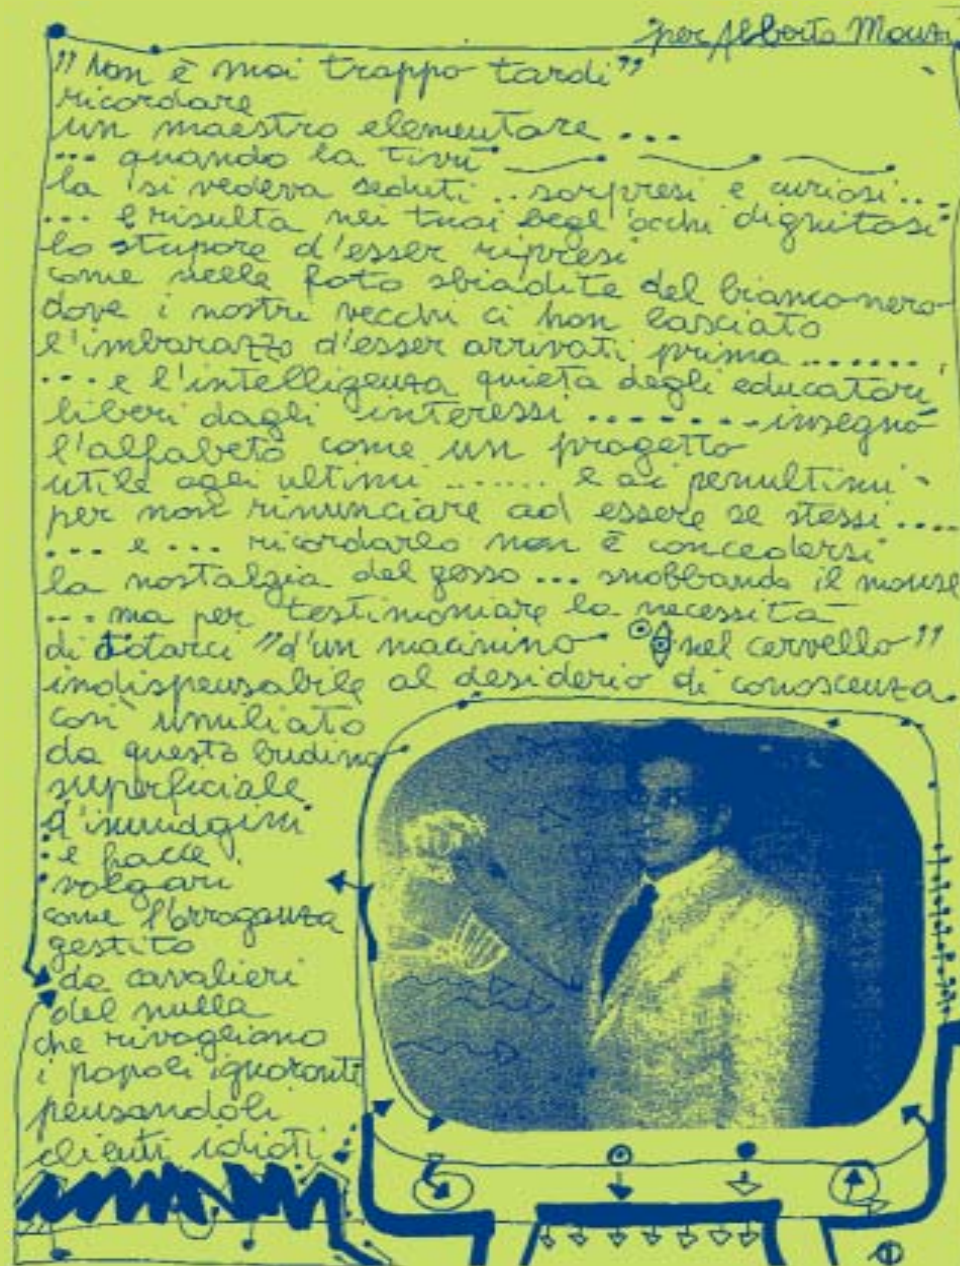 per Alberto Manzi
"Non è mai troppo tardi"
ricordare
un maestro elementare ...
... quando la tivù
la si vedeva seduti .. sorpresi e curiosi ...
... e risulta nei tuoi begl'occhi dignitosi
lo stupore d'esser ripresi
come nelle foto sbiadite del bianco-nero
dove i nostri vecchi ci han lasciato
l'imbarazzo d'esser arrivati prima .......
... e l'intelligenza quieta degli educatori
liberi dagli interessi ....... insegnò
l'alfabeto come un progetto
utile agli ultimi ....... e ai penultimi
per non rinunciare ad essere se stessi ....
... e ... ricordarlo non è concedersi
la nostalgia del gesso ... snobbando il mouse
... ma per testimoniare la necessità
di dotarci "d'un macinino nel cervello"
indispensabile al desiderio di conoscenza
così umiliato
da questo budino
superficiale
d'immagini
e facce
volgari
come l'arroganza
gestito
da cavalieri
del nulla
che rivogliono
i popoli ignoranti
pensandoli
clienti idioti